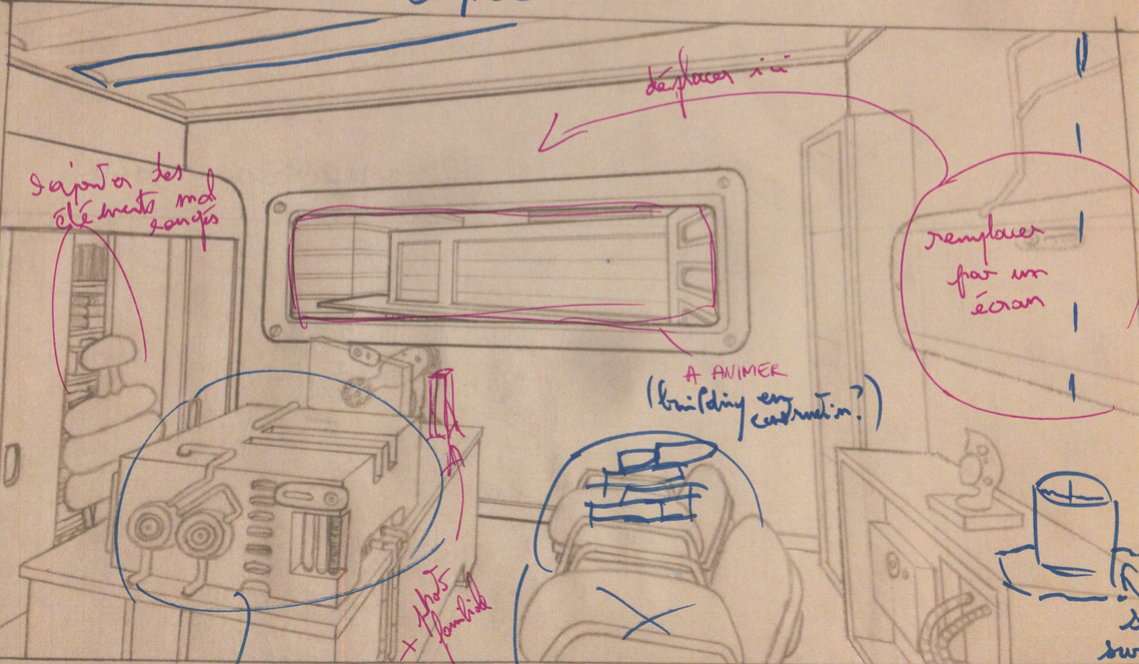 déplacer ici
Rajouter des
éléments mal
rangés
remplacer
par un
écran
A ANIMER
(building en
construction?)
+ photo
famille